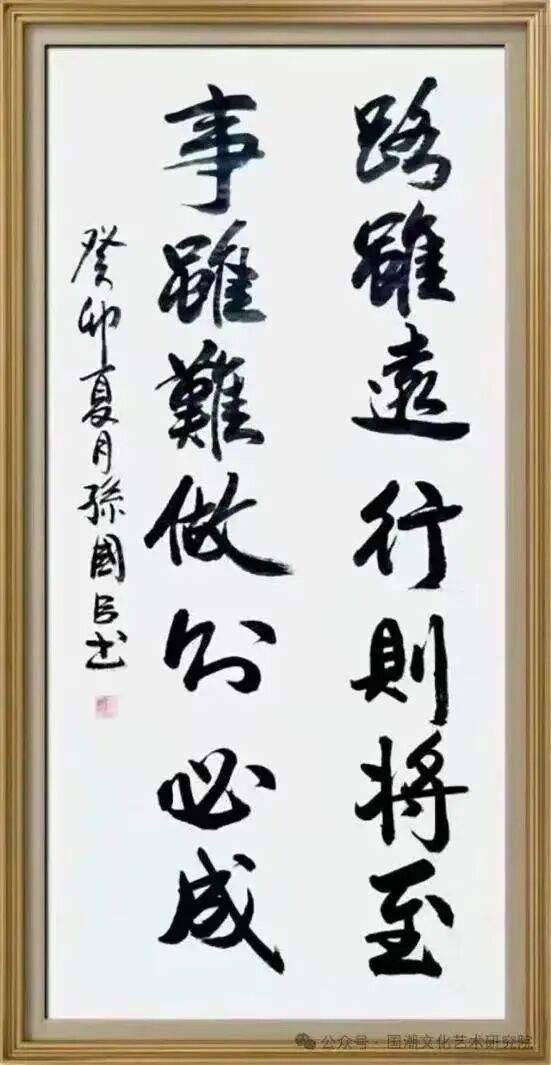 路雖遠行則將至
事雖難做則必成
癸卯夏月孫國吕书
公众号·国潮文化艺术研究院